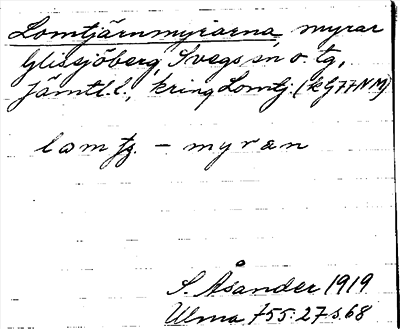 Lomtjärnmyrarna, myrar
Glissjöberg, Svegs sn o. tg,
Jämtl.l., kring Lomtj. (kG77NM)
lomtj. - myran
S. Åsander 1919
Ulma 755:27 s.68